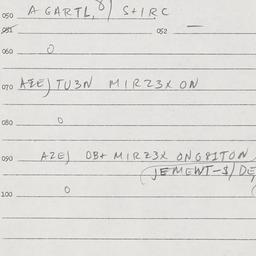 050 A GARTL, 8) S+IRC
051 052
060 O
070 AZE) TU3N MIRZ3X ON
080 O
090 AZE) OB+ MIRZ3X ONG8ITON
(JEMEWT-$/DE,
100 O